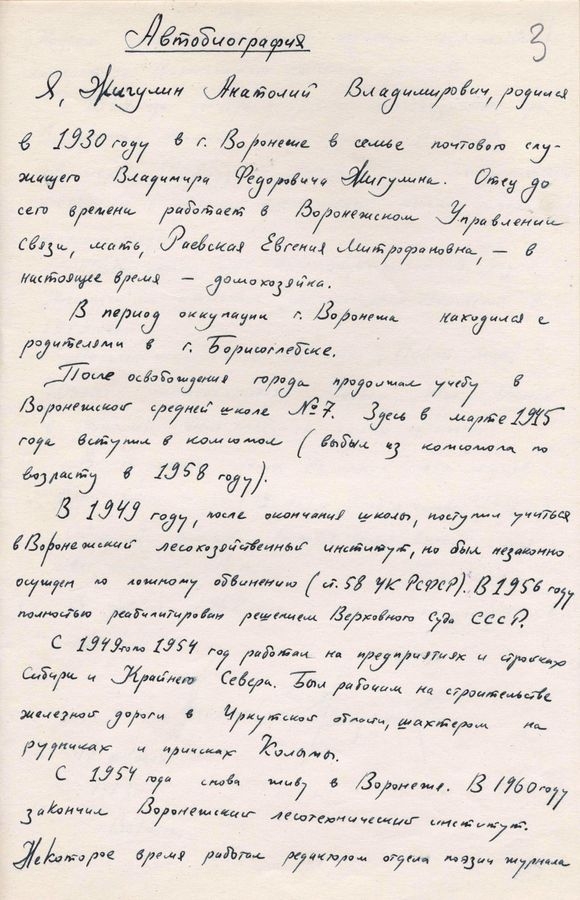 Автобиография
3
Я, Жигулин Анатолий Владимирович, родился
в 1930 году в г. Воронеже в семье почтового слу-
жащего Владимира Федоровича Жигулина. Отец до
сего времени работает в Воронежском Управлении
связи, мать, Раевская Евгения Митрофановна, – в
настоящее время – домохозяйка.
В период оккупации г. Воронежа находился с
родителями в г. Борисоглебске.
После освобождения города продолжал учебу в
Воронежской средней школе №7. Здесь в марте 1945
года вступил в комсомол (выбыл из комсомола по
возрасту в 1958 году).
В 1949 году, после окончания школы, поступил учиться
в Воронежский лесохозяйственный институт, но был незаконно
осужден по ложному обвинению (ст. 58 УК РСФСР). В 1956 году
полностью реабилитирован решением Верховного Суда СССР.
С 1949 по 1954 год работал на предприятиях и стройках
Сибири и Крайнего Севера. Был рабочим на строительстве
железной дороги в Иркутской области, шахтером на
рудниках и приисках Колымы.
С 1954 года снова живу в Воронеже. В 1960 году
закончил Воронежский лесотехнический институт.
Некоторое время работал редактором отдела поэзии журнала